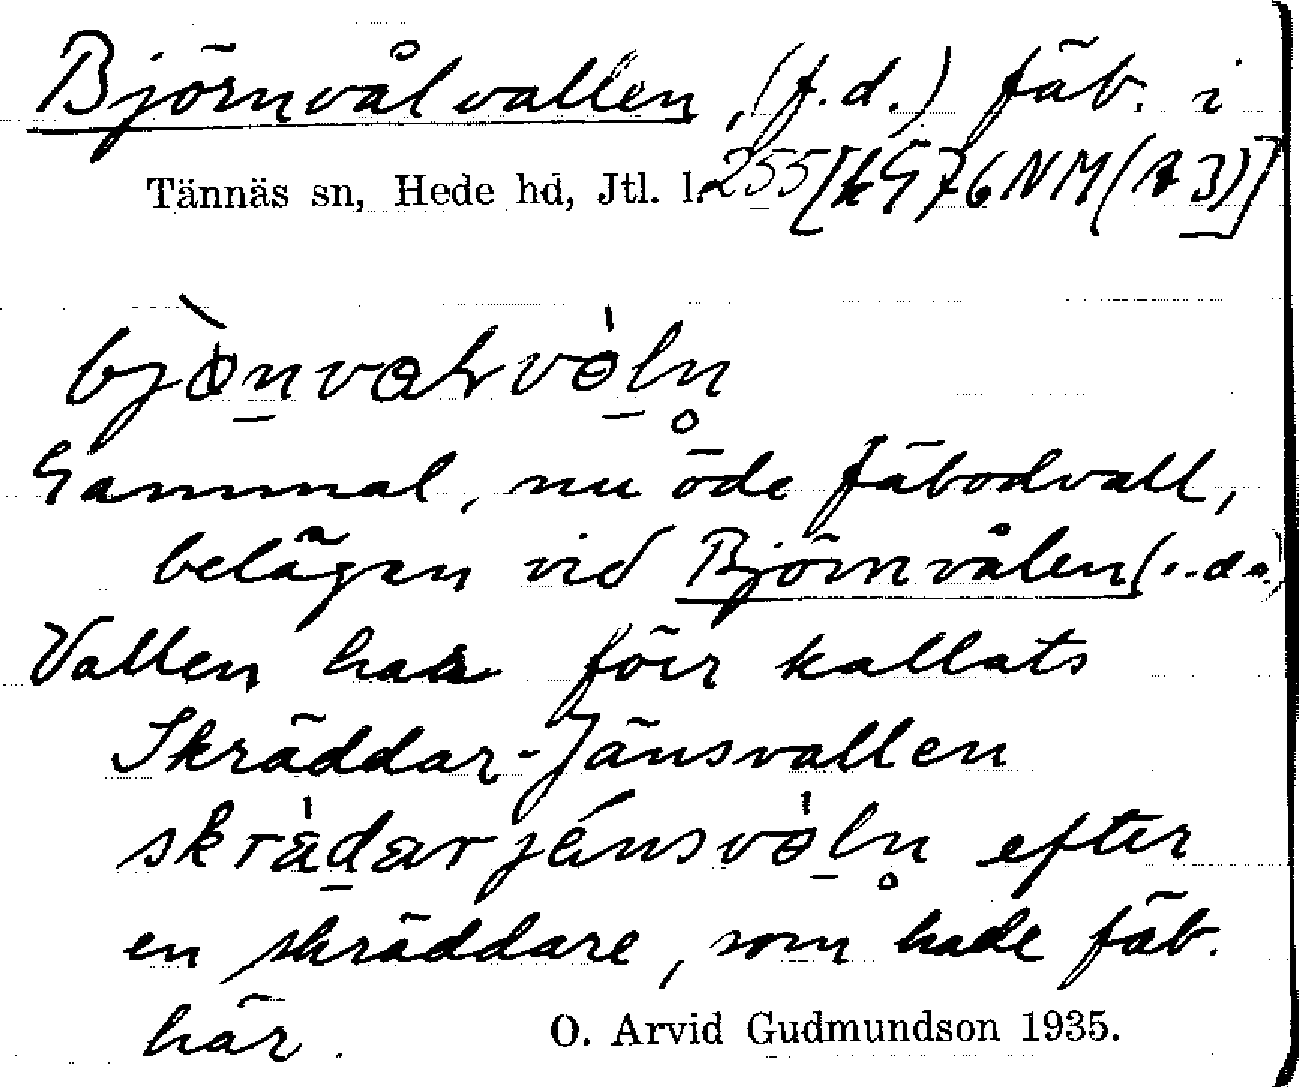 Björnvålvallen, (f.d.) fäb. i
Tännäs sn, Hede hd, Jtl. l. 255
Gammal, nu öde fäbodvall,
belägen vid Björnvålen (..d..)
Vallen har förr kallats
Skräddar-Jänsvallen
skrädarjénsvöln efter
en skräddare, som hade fäb.
här.
O. Arvid Gudmundson 1935.